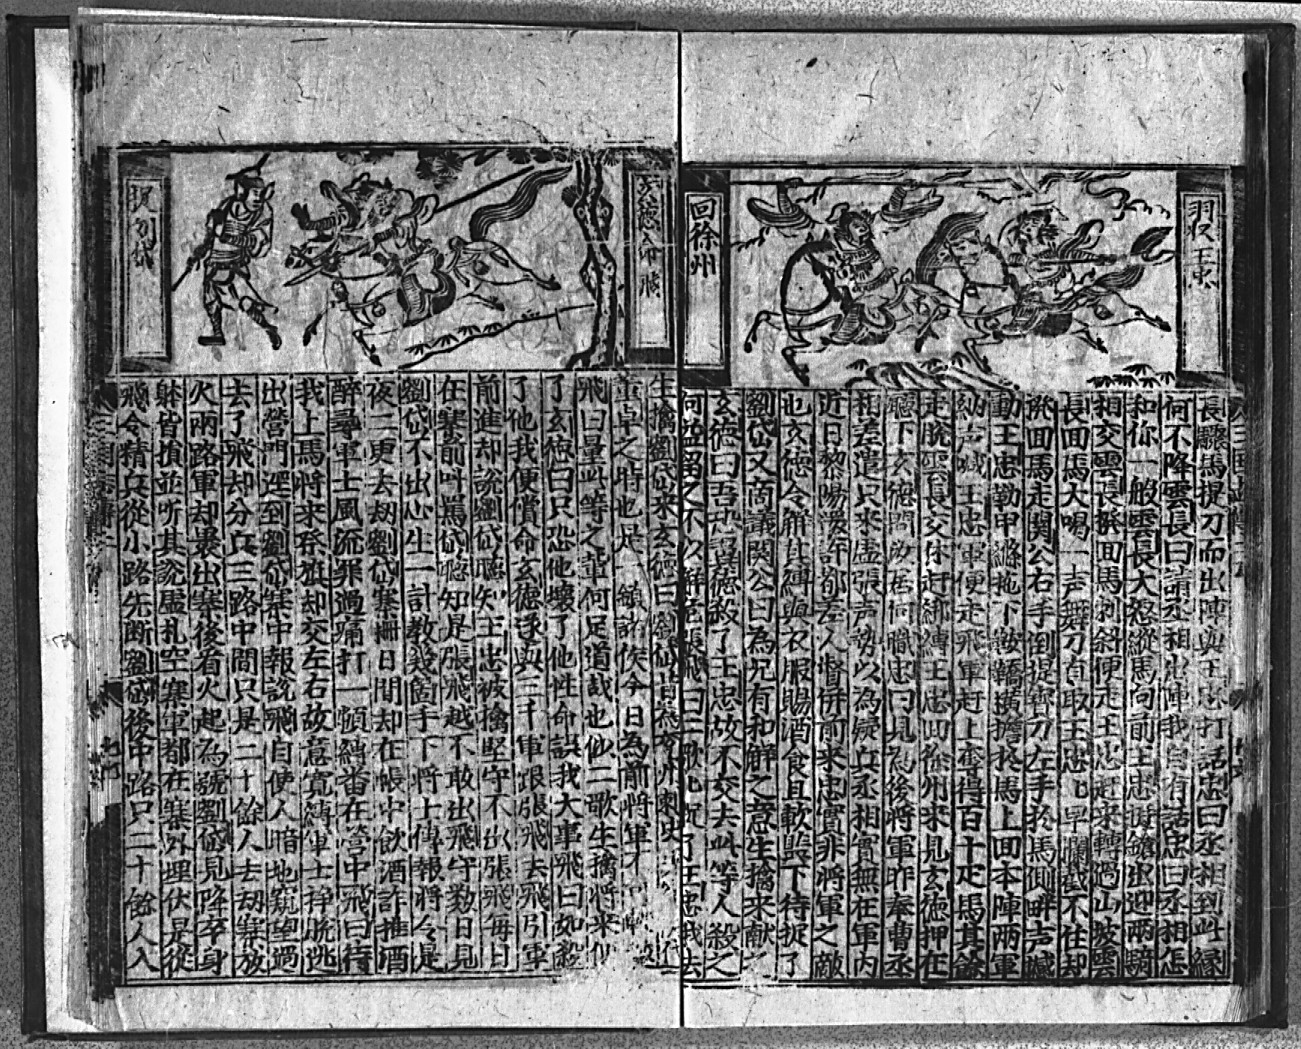 羽收王忠
回徐州
長驟馬提刀而出陣與王忠打話忠曰丞相到此緣
何不降雲長曰請丞相出陣我自有話忠曰丞相怎
和你一般雲長大怒縱馬向前王忠挺鎗出迎兩騎
相交雲長撥回馬刺斜便走王忠赶來轉過山坡雲
長回馬大喝一声舞刀直取王忠忠早攔截不住却
待回馬走関公右手倒提寶刀左手於馬側畔声
動王忠勒甲縧拖下鞍鞽橫擔於馬上回本陣兩軍
吶声喊王忠軍便走飛軍赶上奪得百十疋馬其餘
走脫雲長交休赶綁縛王忠回徐州來見玄德押在
聴下玄德問
相差遣只來虛張声势以為疑兵丞相實無在軍内
近日黎陽
也玄德令觧其縛與衣服賜酒食且軟監下待捉了
劉岱又商議関公曰為兄有和觧之意生擒來献之
玄德曰吾恐翼德殺了王忠故不交去此等人殺之
何益留之不以觧
生擒劉岱來玄德曰劉岱昔為兖州
董卓之時也是一鎮諸侯今日為前將軍不可
飛曰量此等之輩何足道哉也似二歌生擒將來
了玄德曰只恐他壞了他性命誤我大事飛曰如殺
了他我便償命玄德遂與三千軍跟張飛去飛引軍
前進却說劉岱聴知王忠被擒堅守不出張飛每日
在寨前叫罵岱聴知是張飛越不敢出飛守数日見
劉岱不出心生一計教幾箇手下將士傳報將令是
夜二更去刼劉岱寨柵日間却在帳中飲酒詐推酒
醉尋軍士風流罪過痛打一頓縛番在營中飛曰待
我上馬將來祭旗却交左右故意寬縛軍士掙脫逃
出營門逕到劉岱寨中報說飛自使人暗地窺望過
去了飛却分兵三路中間只是二十餘人去刼寨放
火兩路軍却裹出寨後看火起為號劉岱見降卒身
躰皆損並听其說虛扎空寨軍都在寨外埋伏是從
飛令精兵從小路先断劉岱後中路只二十餘人入
玄德命飛
捉刘岱